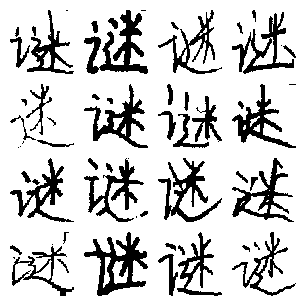 谜谜谜谜
谜谜谜谜
谜谜谜谜
谜谜谜谜